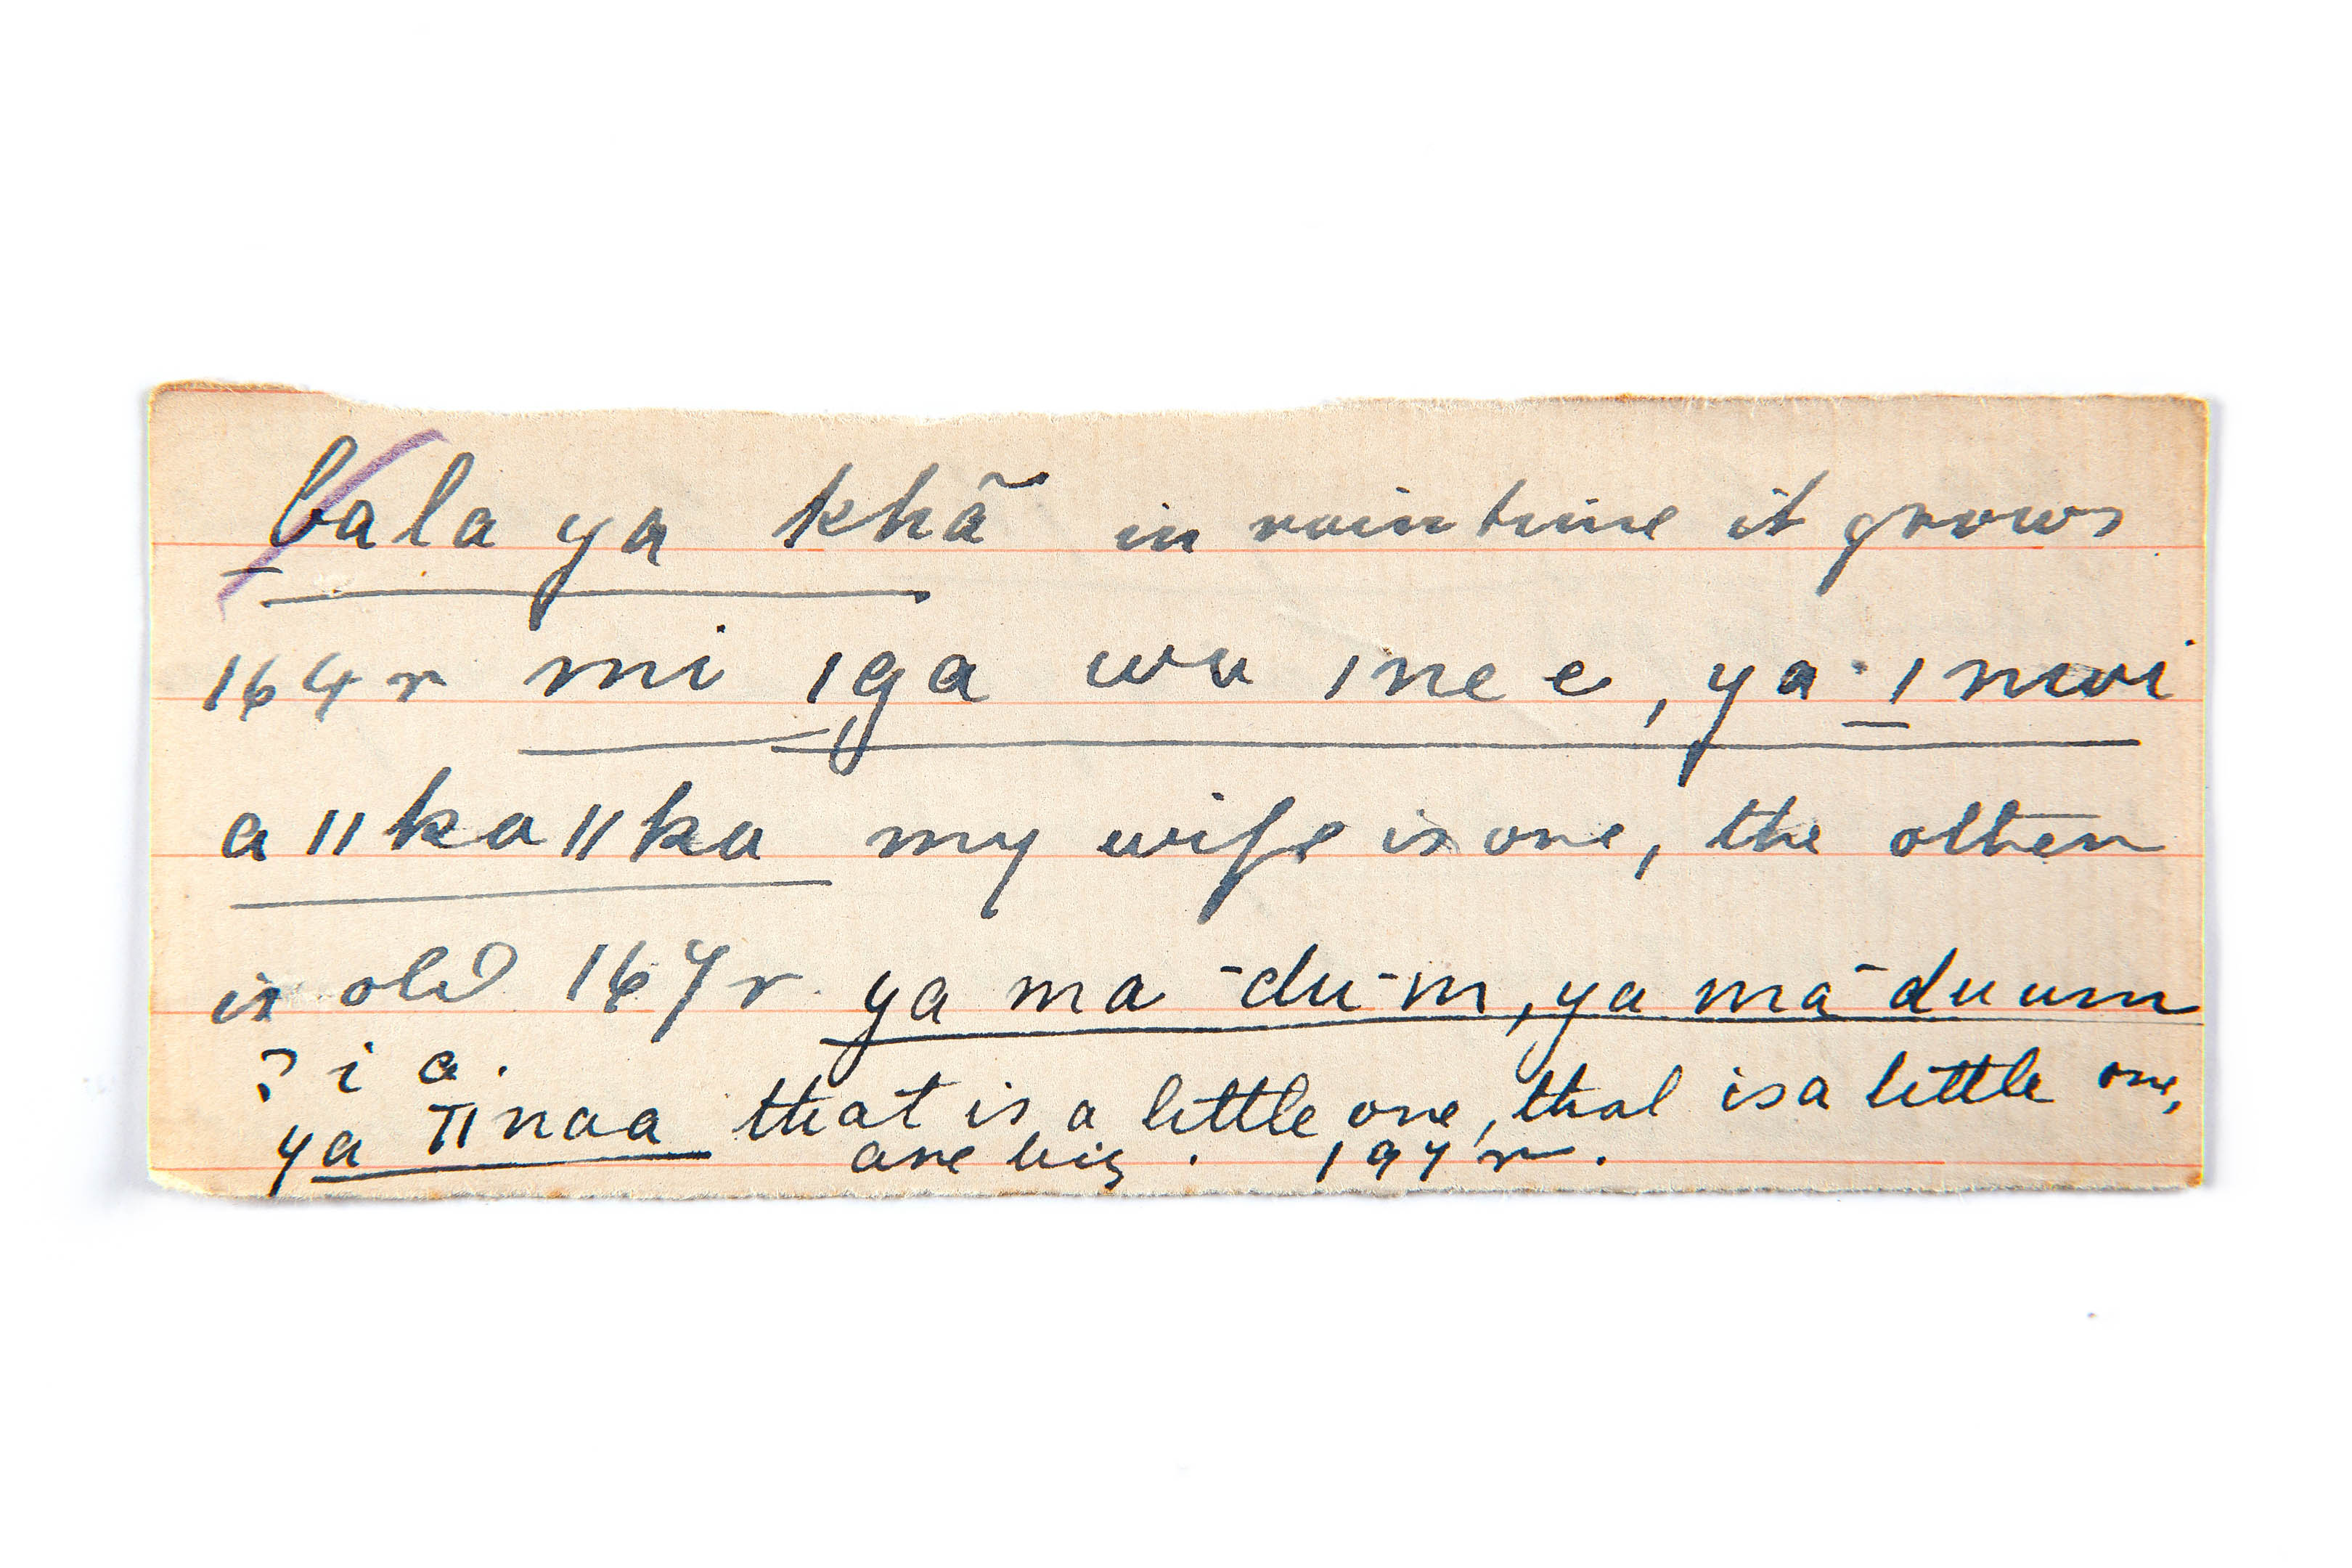 bala ya khã in raintime it grows
164r mi ı̨ga wu ınee, ya· ı nwi
a ıı ka ıı ka my wife is one, the other
is old 167r ya ma ̄du ̄m, ya ma ̄duum
ʔ i a.
ya ıınaa that is a little one, that is a little one,
are big. 197r.